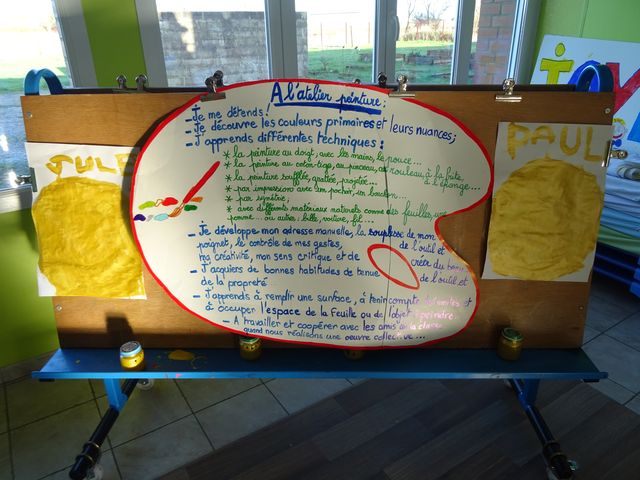 A l'atelier peinture :
- Je me détends !
- Je découvre les couleurs primaires et leurs nuances ;
- J'apprends différentes techniques :
* la peinture au doigt, avec les mains, le pouce...
* la peinture au coton-tige, au pinceau, au rouleau, à la fuite
à l'éponge...
* la peinture soufflée, grattée, projetée...
* par impression avec un pochoir, un bouchon...
* par symétrie,
* avec différents matériaux naturels comme des feuilles, une
pomme... ou autres : bille, voiture, fil...
- Je développe mon adresse manuelle, la souplesse de mon
poignet, le contrôle de mes gestes, de l'outil et
ma créativité, mon sens critique et de
- J'acquiers de bonnes habitudes de tenue de l'outil et
de la propreté
- J'apprends à remplir une surface, à tenir compte des limites et
à occuper l'espace de la feuille ou de l'objet à peindre.
- A travailler et coopérer avec les amis de la classe
quand nous réalisons une oeuvre collective...
PAUL